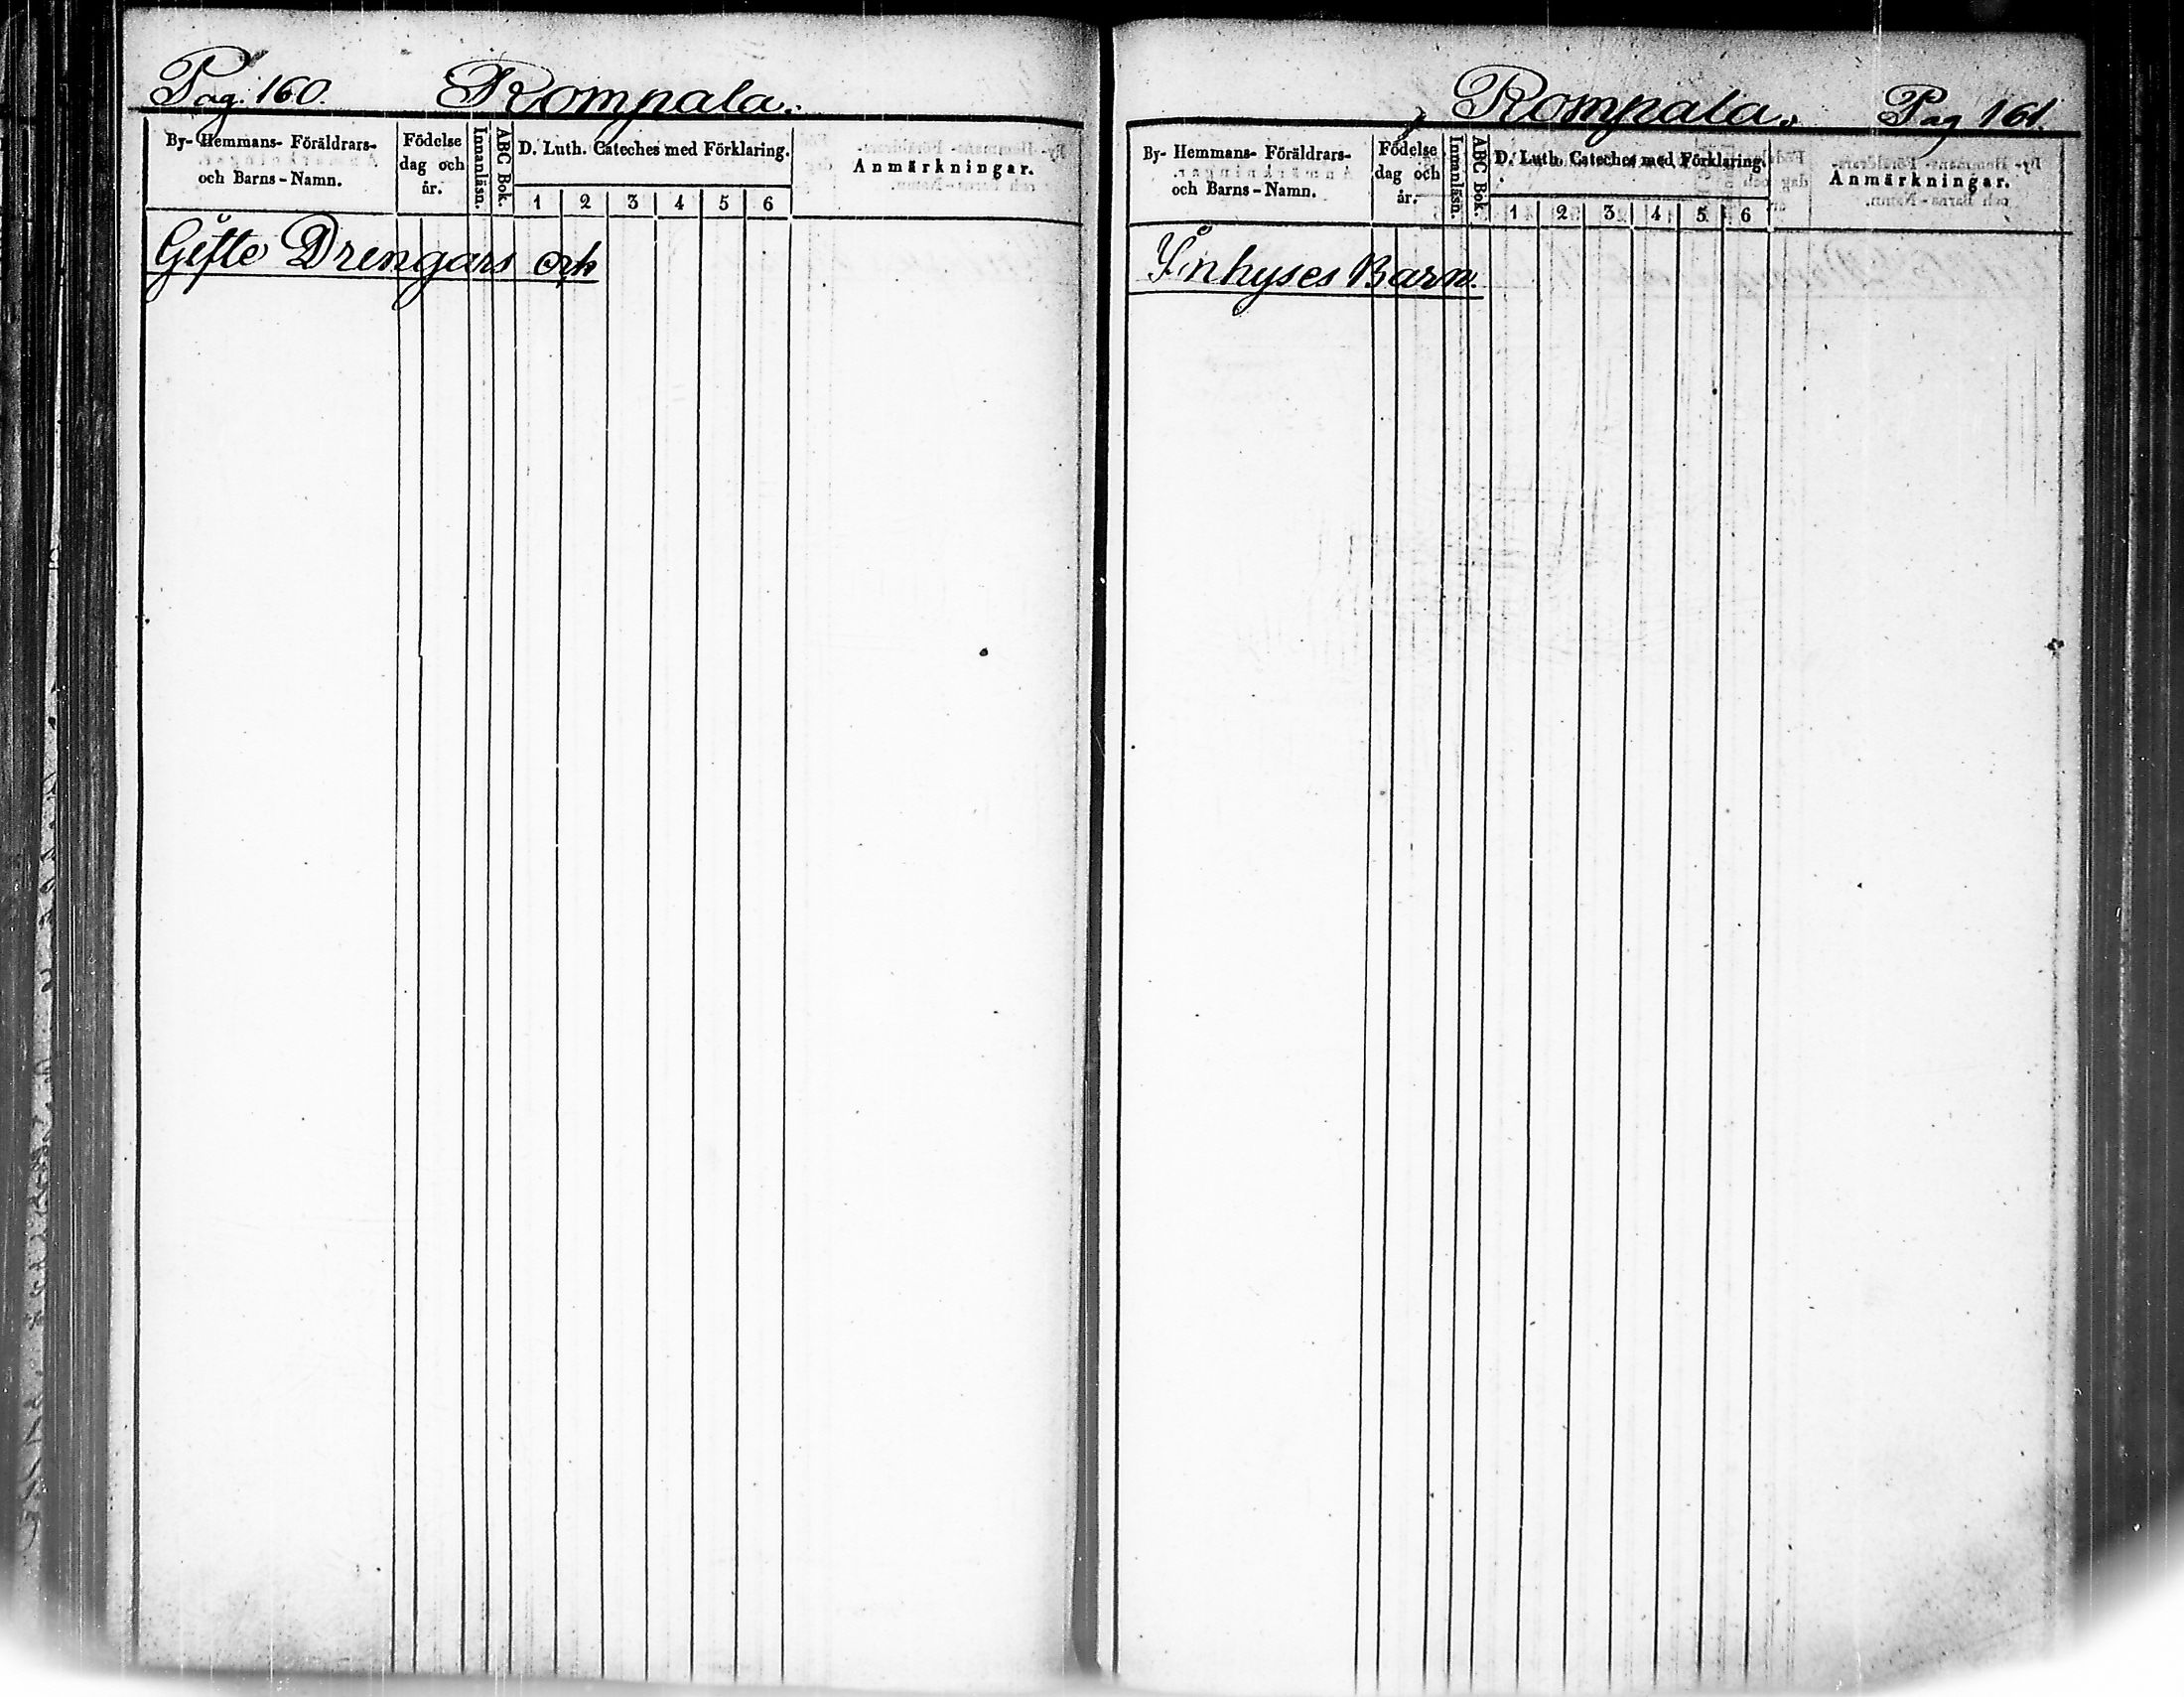 Pag. 160. Rompala.
By- Hemmans- Föräldrars-
och Barns-Namn.
Födelse
dag och
år.
Innanläsn.
ABC Bok.
D. Luth. Cateches med Förklaring.
1 2 3 4 5 6
Anmärkningar.
Gifte Drengars och
Rompala. Pag 161.
By- Hemmans- Föräldrars-
och Barns-Namn.
Födelse
dag och
år.
Innanläsn.
ABC Bok.
D. Luth. Cateches med Förklaring.
1 2 3 4 5 6
Anmärkningar.
Inhyses Barn.